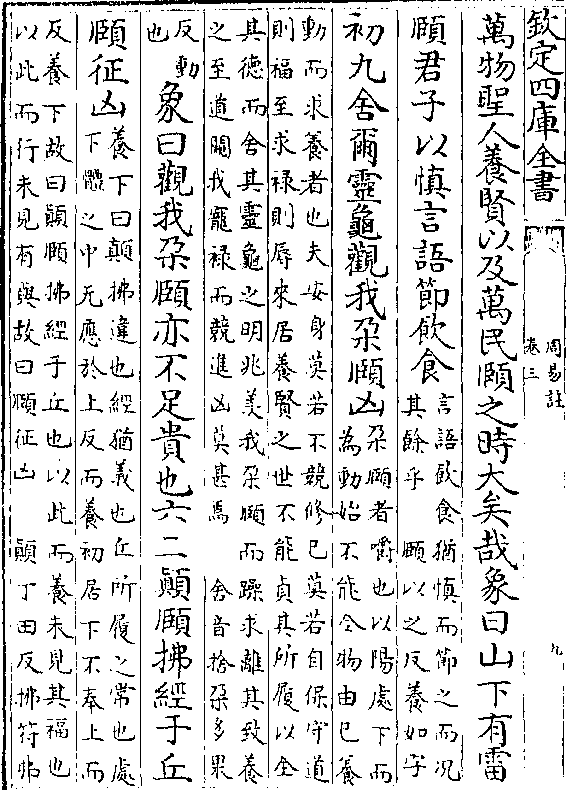 欽定四庫全書
周易註
卷三
九
萬物聖人養賢以及萬民頤之時大矣哉象曰山下有雷
頤君子以慎言語節飲食
言語飲食猶慎而節之而況
其餘乎　頤以之反養如字
初九舍爾靈龜觀我朵頤凶
朵頤者嚼也以陽處下而
為動始不能令物由己養
動而求養者也夫安身莫若不競修己莫若自保守道
則福至求禄則辱來居養賢之世不能貞其所履以全
其德而舍其靈龜之明兆羡我朵頤而躁求離其致養
之至道闚我寵禄而競進凶莫甚焉　舍音捨朵多果
反動
也
象曰觀我朵頤亦不足貴也六二顛頤拂經于丘
頤征凶
養下曰顛拂違也經猶義也丘所履之常也處
下體之中无應於上反而養初居下不奉上而
反養下故曰顛頤拂經于丘也以此而養未見其福也
以此而行未見有與故曰頤征凶　顛丁田反拂符弗